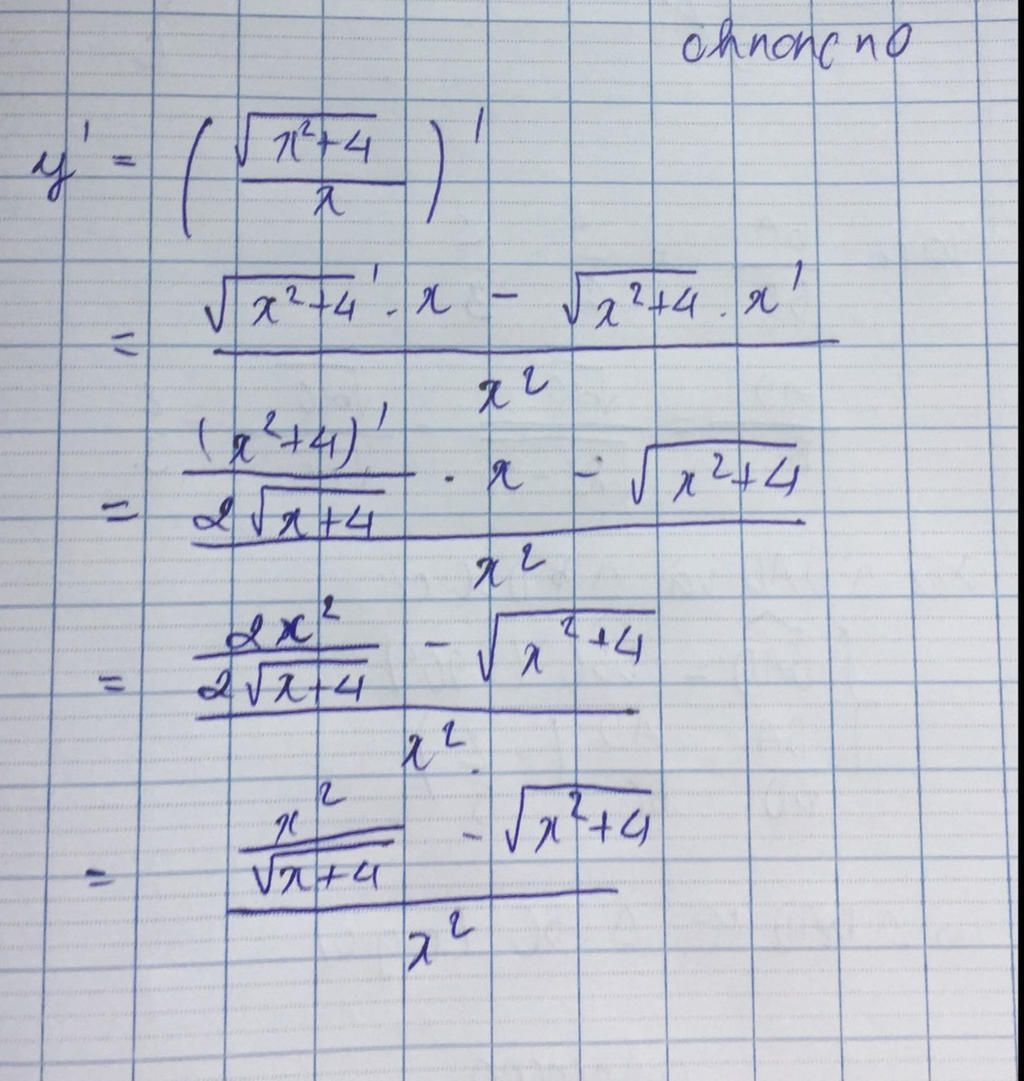 y' = ( √(x²+4) / x )'
= (√(x²+4)' . x - √(x²+4) . x') / x²
= ((x²+4)' / (2√(x+4)) . x - √(x²+4)) / x²
= (2x² / (2√(x+4)) - √(x²+4)) / x²
= (x² / √(x+4) - √(x²+4)) / x²